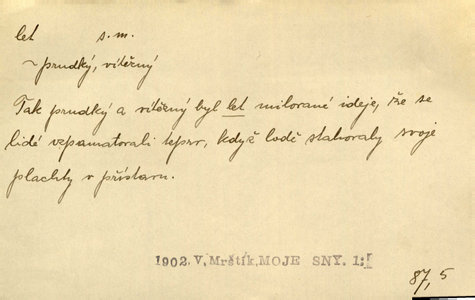 let s. m.
~ prudký, vítězný
Tak prudký a vítězný byl let milované ideje, že se
lidé vzpamatovali teprv, když lodě stahovaly svoje
plachty v přístavu.
1902. V. Mrštík, MOJE SNY. 1:I
87, 5